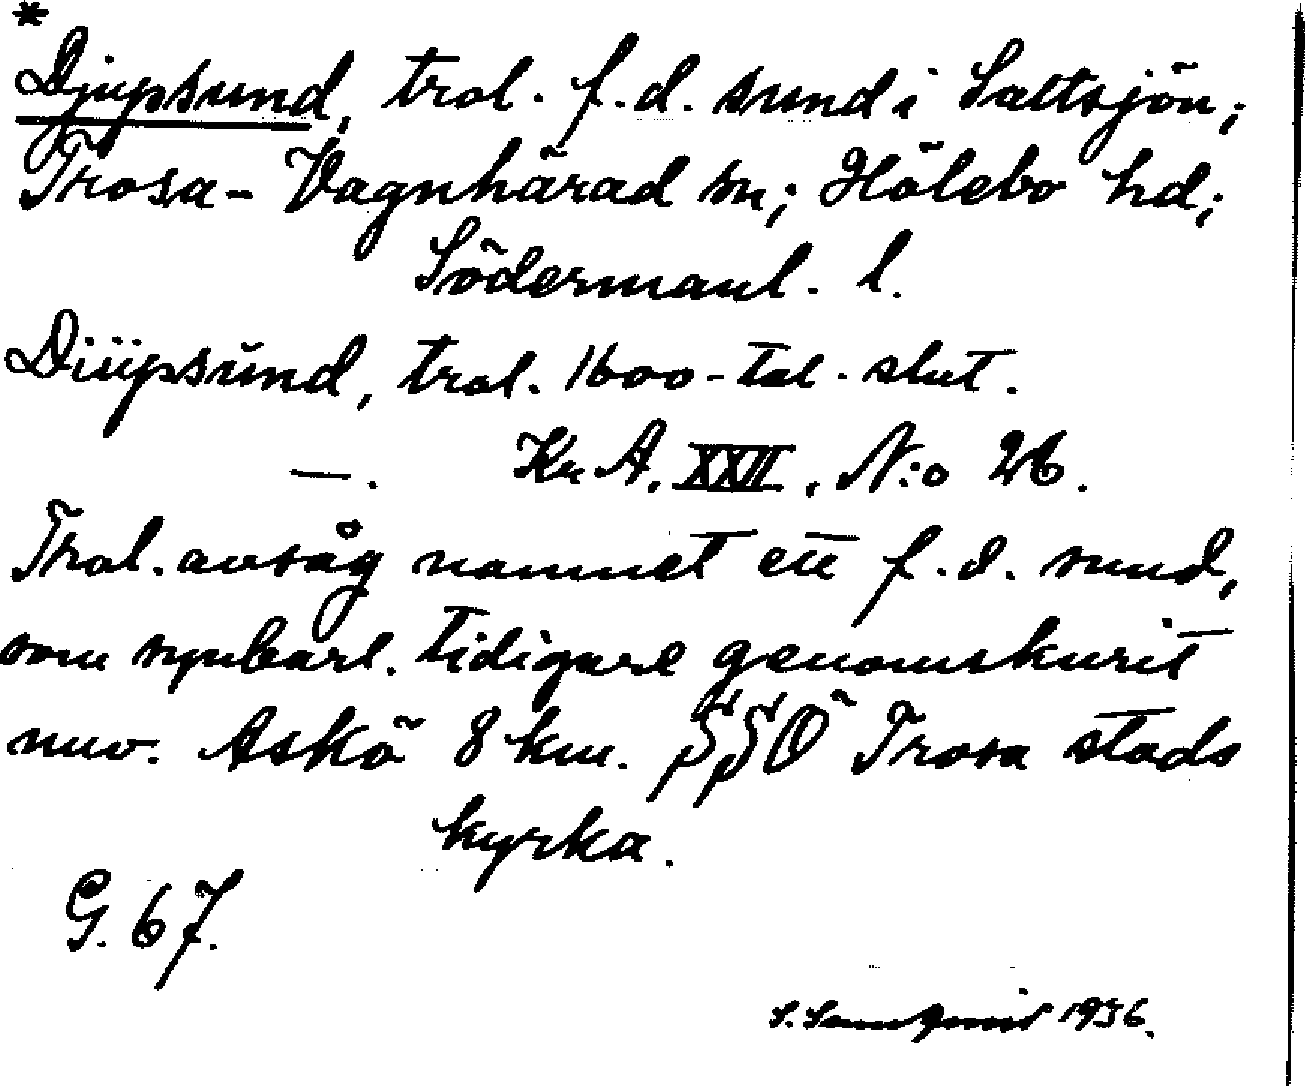 *
Djupsund, trol. f.d. sund i Saltsjön;
Trosa-Vagnhärad sn; Hölebo hd;
Södermanl. l.
Diüpsŭnd, trol. 1600-tal. slut.
—. Kr. A. XXII, N:o 26.
Trol. avsåg namnet ett f.d. sund,
som synbarl. tidigare genomskurit
nuv. Askö 8 km. SSÖ Trosa stads
kyrka.
G. 67.
1936.